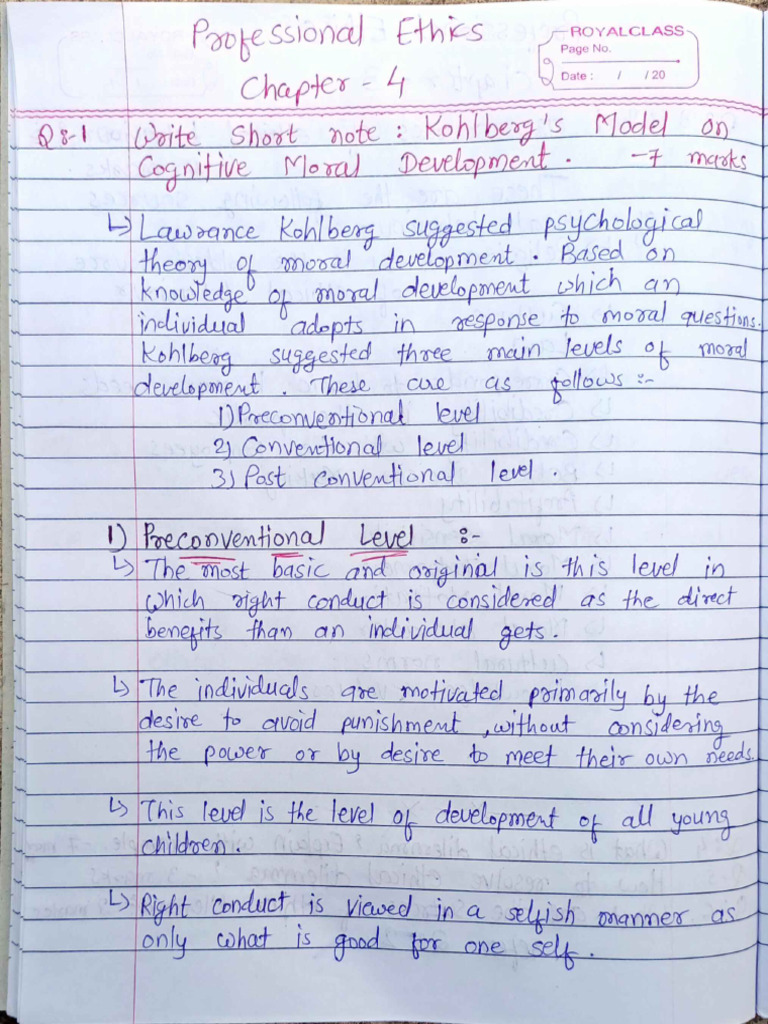 Professional Ethics
ROYALCLASS
Page No.
Date : / /20
Chapter - 4
Q8-1 Write Short note : Kohlberg's Model on
Cognitive Moral Development. -7 marks
↳ Lawrance Kohlberg suggested psychological
theory of moral development. Based on
knowledge of moral development which an
individual adopts in response to moral questions.
Kohlberg suggested three main levels of moral
development. These are as follows :-
1) Preconventional level
2) Conventional level
3) Post conventional level.
1) Preconventional Level :-
↳ The most basic and original is this level in
which right conduct is considered as the direct
benefits than an individual gets.
↳ The individuals are motivated primarily by the
desire to avoid punishment, without considering
the power or by desire to meet their own needs.
↳ This level is the level of development of all young
children.
↳ Right conduct is viewed in a selfish manner as
only what is good for one self.